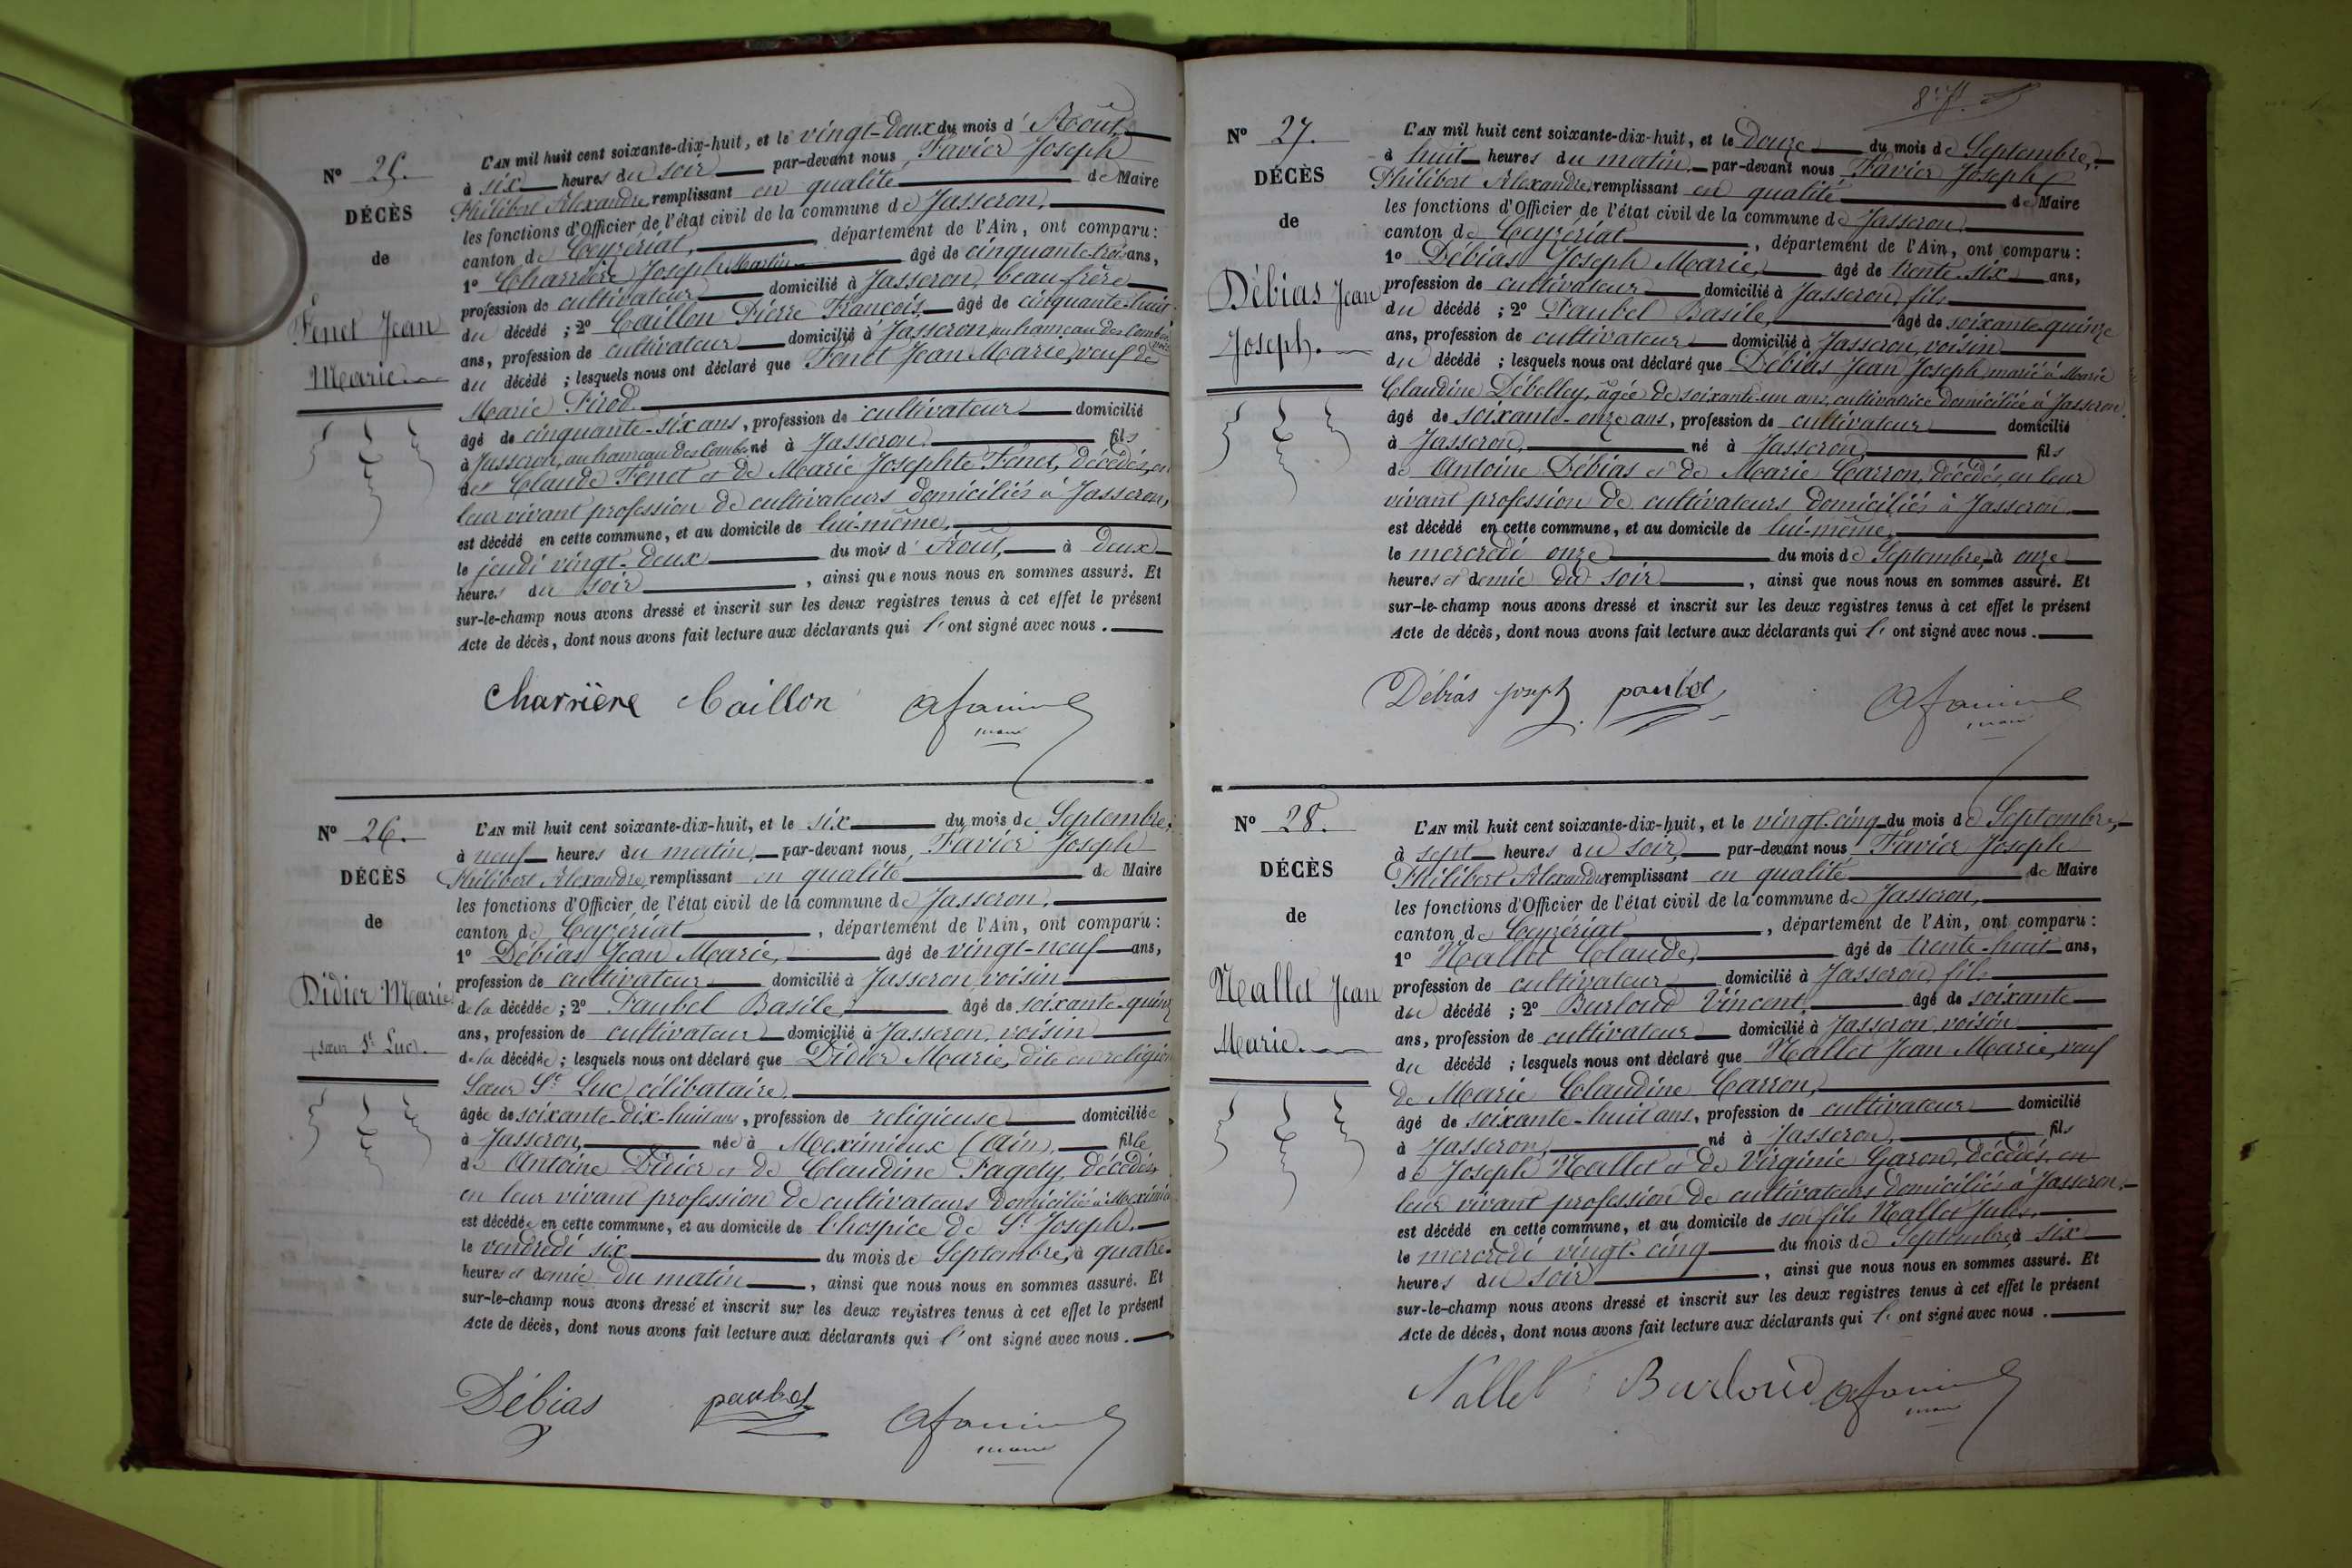 N° 25.
DÉCÈS
de
Fenet Jean
Marie.
L'AN mil huit cent soixante-dix-huit, et le vingt-deux du mois d'Août,
à six heures du soir par-devant nous, Favier Joseph
Philibert Alexandre, remplissant en qualité de Maire
les fonctions d'Officier de l'état civil de la commune de Jasseron,
canton de Ceyzériat, département de l'Ain, ont comparu :
1° Charrière Joseph Martin âgé de cinquante-trois ans,
profession de cultivateur domicilié à Jasseron, beau-frère
du décédé ; 2° Caillon Pierre François, âgé de cinquante-huit
ans, profession de cultivateur domicilié à Jasseron, au hameau des Combes
du décédé ; lesquels nous ont déclaré que Fenet Jean Marie, veuf de
Marie Pirod.
âgé de cinquante-six ans, profession de cultivateur domicilié
à Jasseron, au hameau des Combes né à Jasseron, fils
de Claude Fenet et de Marie Josephte Fenet, décédés, en
leur vivant profession de cultivateurs domiciliés à Jasseron,
est décédé en cette commune, et au domicile de lui-même,
le jeudi vingt-deux du mois d'Août, à deux
heures du soir, ainsi que nous nous en sommes assuré. Et
sur-le-champ nous avons dressé et inscrit sur les deux registres tenus à cet effet le présent
Acte de décès, dont nous avons fait lecture aux déclarants qui l'ont signé avec nous.
Charrière Caillon
N° 26.
DÉCÈS
de
Didier Marie
(sœur St Luc).
L'AN mil huit cent soixante-dix-huit, et le six du mois de Septembre,
à neuf heures du matin, par-devant nous, Favier Joseph
Philibert Alexandre, remplissant en qualité de Maire
les fonctions d'Officier de l'état civil de la commune de Jasseron,
canton de Ceyzériat, département de l'Ain, ont comparu :
1° Débias Jean Marie, âgé de vingt-neuf ans,
profession de cultivateur domicilié à Jasseron, voisin
de la décédée ; 2° Paubel Basile, âgé de soixante-quinze
ans, profession de cultivateur domicilié à Jasseron, voisin
de la décédée ; lesquels nous ont déclaré que Didier Marie, dite en religion
Sœur St Luc, célibataire,
âgée de soixante-dix-huit ans, profession de religieuse domiciliée
à Jasseron, née à Meximieux (Ain), fille
de Antoine Didier et de Claudine Pagety, décédés,
en leur vivant profession de cultivateurs domiciliés à Meximieux
est décédée en cette commune, et au domicile de l'hospice de St Joseph,
le vendredi six du mois de Septembre, à quatre
heures et demie du matin, ainsi que nous nous en sommes assuré. Et
sur-le-champ nous avons dressé et inscrit sur les deux registres tenus à cet effet le présent
Acte de décès, dont nous avons fait lecture aux déclarants qui l'ont signé avec nous.
Débias paubel
N° 27.
DÉCÈS
de
Débias Jean
Joseph.
L'AN mil huit cent soixante-dix-huit, et le douze du mois de Septembre,
à huit heures du matin, par-devant nous Favier Joseph
Philibert Alexandre, remplissant en qualité de Maire
les fonctions d'Officier de l'état civil de la commune de Jasseron,
canton de Ceyzériat, département de l'Ain, ont comparu :
1° Débias Joseph Marie, âgé de trente-six ans,
profession de cultivateur domicilié à Jasseron, fils
du décédé ; 2° Paubel Basile, âgé de soixante-quinze
ans, profession de cultivateur domicilié à Jasseron, voisin
du décédé ; lesquels nous ont déclaré que Débias Jean Joseph, marié à Marie
Claudine Débelley, âgée de soixante-un ans, cultivatrice domiciliée à Jasseron,
âgé de soixante-onze ans, profession de cultivateur domicilié
à Jasseron, né à Jasseron, fils
de Antoine Débias et de Marie Carron, décédés, en leur
vivant profession de cultivateurs domiciliés à Jasseron
est décédé en cette commune, et au domicile de lui-même,
le mercredi onze du mois de Septembre, à onze
heures et demie du soir, ainsi que nous nous en sommes assuré. Et
sur-le-champ nous avons dressé et inscrit sur les deux registres tenus à cet effet le présent
Acte de décès, dont nous avons fait lecture aux déclarants qui l'ont signé avec nous.
Débias joseph paubel
N° 28.
DÉCÈS
de
Nallet Jean
Marie.
L'AN mil huit cent soixante-dix-huit, et le vingt-cinq du mois de Septembre,
à sept heures du soir, par-devant nous Favier Joseph
Philibert Alexandre, remplissant en qualité de Maire
les fonctions d'Officier de l'état civil de la commune de Jasseron,
canton de Ceyzériat, département de l'Ain, ont comparu :
1° Nallet Claude, âgé de trente-huit ans,
profession de cultivateur domicilié à Jasseron, fils
du décédé ; 2° Burloud Vincent, âgé de soixante
ans, profession de cultivateur domicilié à Jasseron, voisin
du décédé ; lesquels nous ont déclaré que Nallet Jean Marie, veuf
de Marie Claudine Carron,
âgé de soixante-huit ans, profession de cultivateur domicilié
à Jasseron, né à Jasseron, fils
de Joseph Nallet et de Virginie Garon, décédés, en
leur vivant profession de cultivateurs domiciliés à Jasseron,
est décédé en cette commune, et au domicile de son fils Nallet Jules,
le mercredi vingt-cinq du mois de Septembre, à six
heures du soir, ainsi que nous nous en sommes assuré. Et
sur-le-champ nous avons dressé et inscrit sur les deux registres tenus à cet effet le présent
Acte de décès, dont nous avons fait lecture aux déclarants qui l'ont signé avec nous.
Nallet Burloud